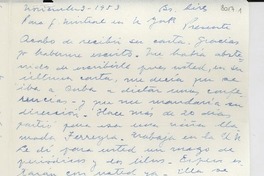 Noviembre - 1953 Bs. Aires
Para G. Mistral en N. York Presente
Acabo de recibir su carta. Gracias
por haberme escrito. Me había abste-
nido de escribirle pues usted, en su
última carta, me decía que se
iba a Cuba a dictar unas confe-
rencias. y que me mandaría su
dirección. Hace más de 20 días
partió para esa una niña lla-
mada Ferreyra. trabaja en la U.N.
Le di para usted un mazo de
periódicos y los libros.